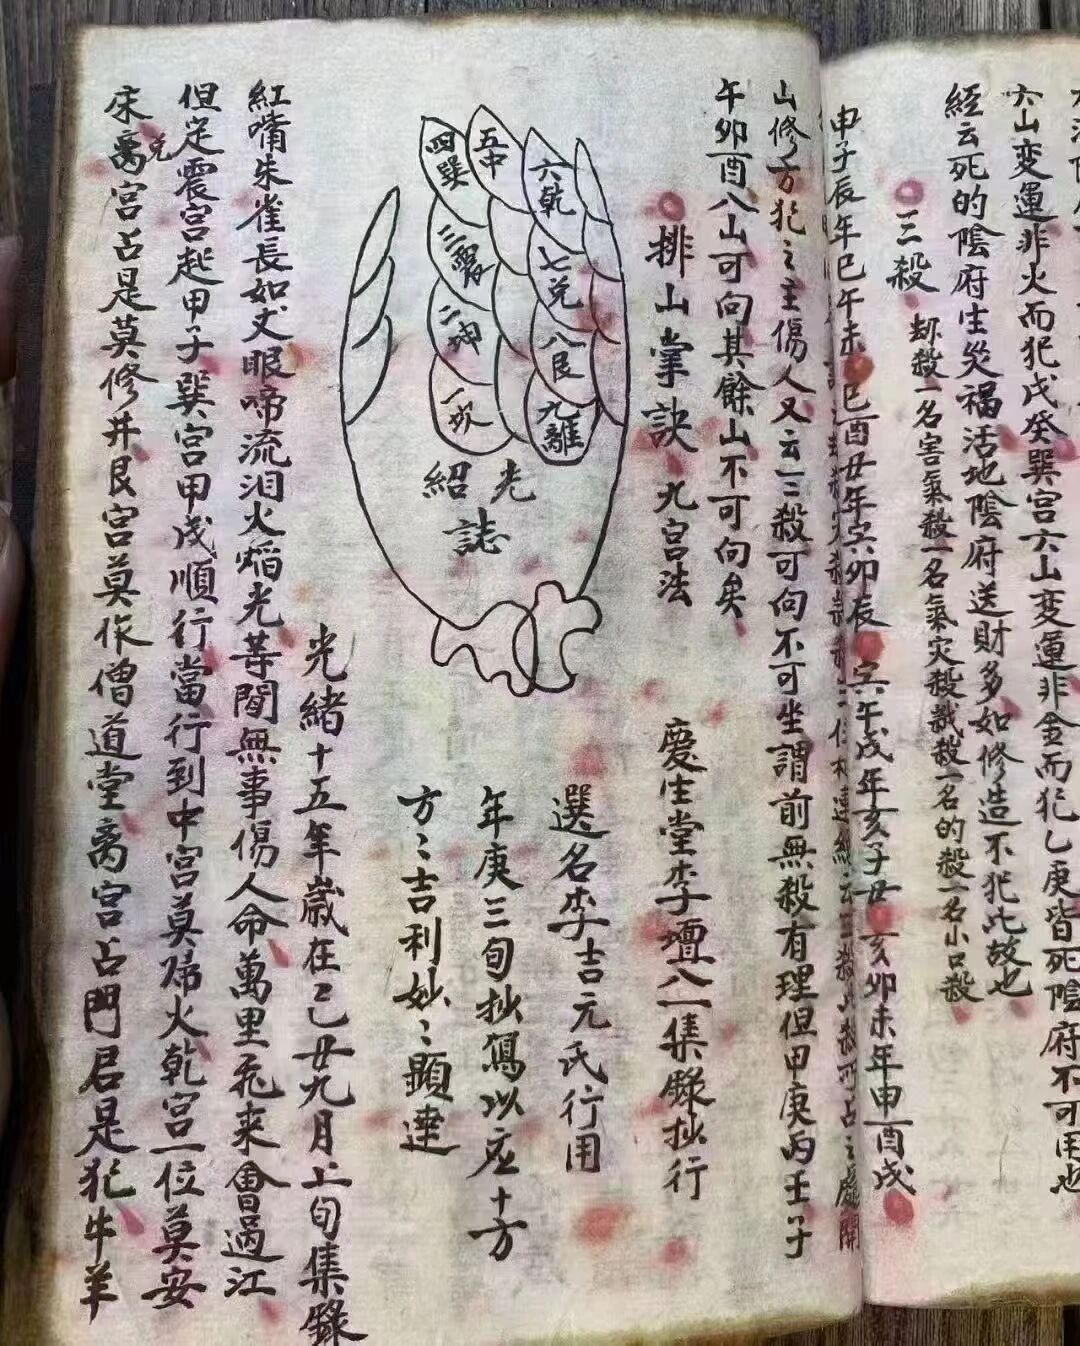 六山變運非火而犯戊癸巽宮六山變運非金而犯乙庚皆死陰府不可用也
經云死的陰府生災福活地陰府送財多如修造不犯此故也
三殺
刼殺一名害氣殺一名氣灾殺歲殺一名的殺一名小口殺
申子辰年巳午未 巳酉丑年寅卯辰 寅午戌年亥子丑 亥卯未年申酉戌
山修方犯之主傷人又云三殺可向不可坐謂前無殺有理但甲庚丙壬子
午卯酉八山可向其餘山不可向矣
排山掌訣 九宮法
慶生堂李壇八一集錄抄行
四巽
五中
六乾
三震
七兌
二坤
八艮
一坎
九離
光
紹
誌
選名李吉元氏行用
年庚三旬抄寫以应十方
方〻吉利妙〻顕達
光緒十五年歲在己丑九月上旬集錄
紅嘴朱雀長如丈眼啼流泪火焰光等閒無事傷人命萬里飛来會過江
但定震宮起甲子巽宮甲戌順行當行到中宮莫㷌火乾宮一位莫安
床离兌宮占是莫修井艮宮莫作僧道堂离宮占門君是犯牛羊